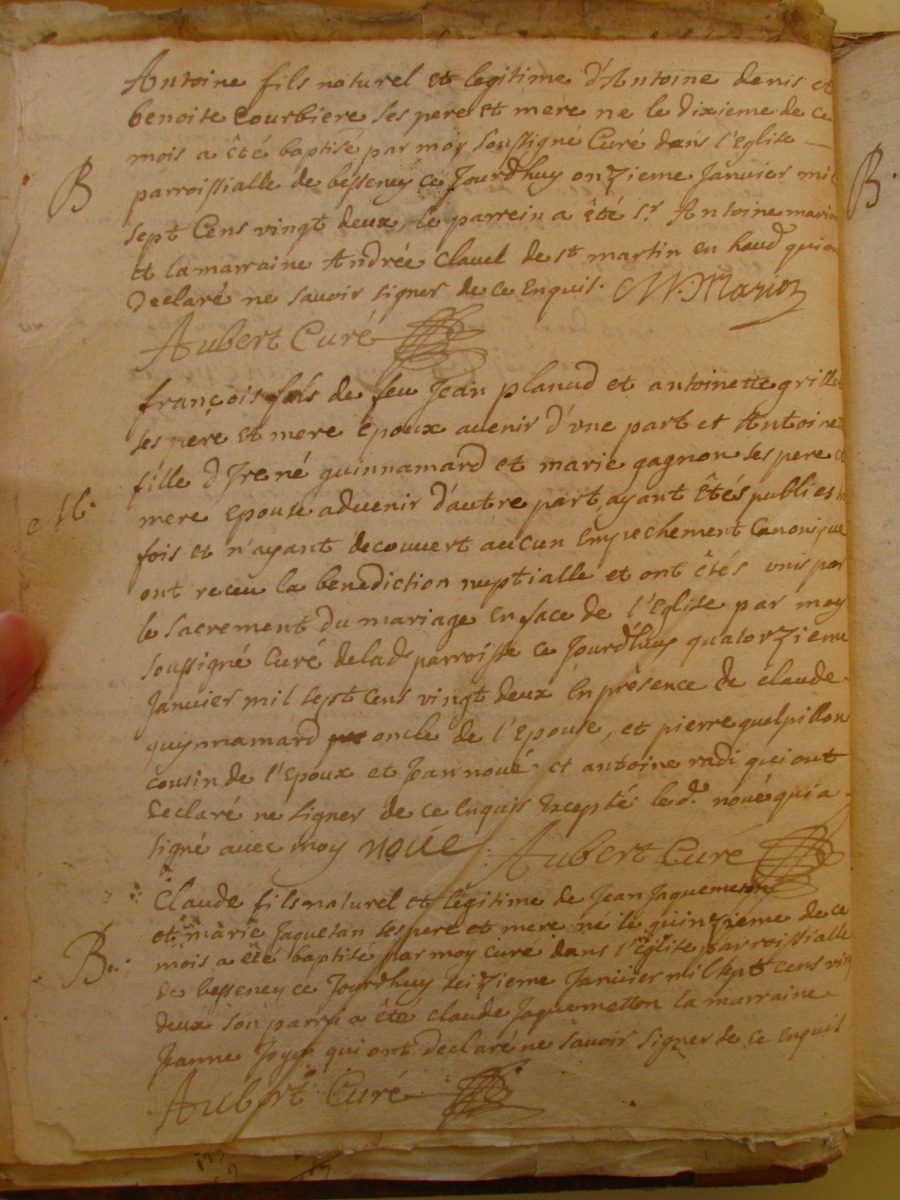 Antoine fils naturel et legitime d'Antoine denis et
benoite Courbiere ses pere et mere ne le dixieme de ce
mois a été baptisé par moy soussigné Curé dans l'Eglise
B
parroissialle de besseney ce Jourdhuy onzieme Janvier mil
sept Cens vingt deux, le parrein a été Sr. Antoine
et la marraine Andrée Clavel de st martin en haud qui
declaré ne savoir signer de ce Enquis.
Aubert Curé
françois fils de feu Jean planud et antoinette
ses pere et mere Epoux avenir d'une part et
fille d'Irené guinnamard et marie gagnon ses pere et
M.
mere epouse advenir d'autre part, ayant êtés publiés
fois et n'ayant decouvert aucun Empechement Canonique
ont receu la benediction nuptialle et ont êtés unis par
le Sacrement du mariage En face de l'Eglise par moy
soussigné Curé delad. parroisse ce Jourdhuy quatorzieme
Janvier mil sept cens vingt deux En presence de claude
quinnamard oncle de l'Epouse, et pierre quelpillon
cousin de l'Epoux et Jean noué et antoine radi qui ont
declaré ne signer de ce Enquis Excepté le d. noué qui a
signé avec moy noüe Aubert Curé
Claude fils naturel et legitime de Jean Jaquemeton
et marie Jaquetan ses pere et mere né le quinzieme de ce
B
mois a été baptisé par moy curé dans l'Eglise parroissialle
de besseney ce Jourdhuy seizieme Janvier mil sept cens
deux son parrÿ a êté claude Jaquemetton la marraine
Jeanne qui ont declaré ne savoir signer de ce enquis
Aubert Curé